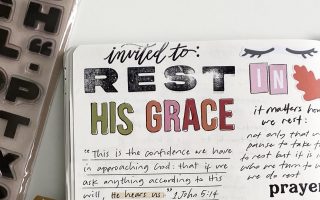 invited to:
REST
HIS GRACE
"This is the confidence we have
in approaching God: that if we
ask anything according to His
will, He hears us." 1 John 5:14
IN
it matters how
we rest:
not only that we
pause to take
to rest but it is in
who we turn to
we do rest
prayer